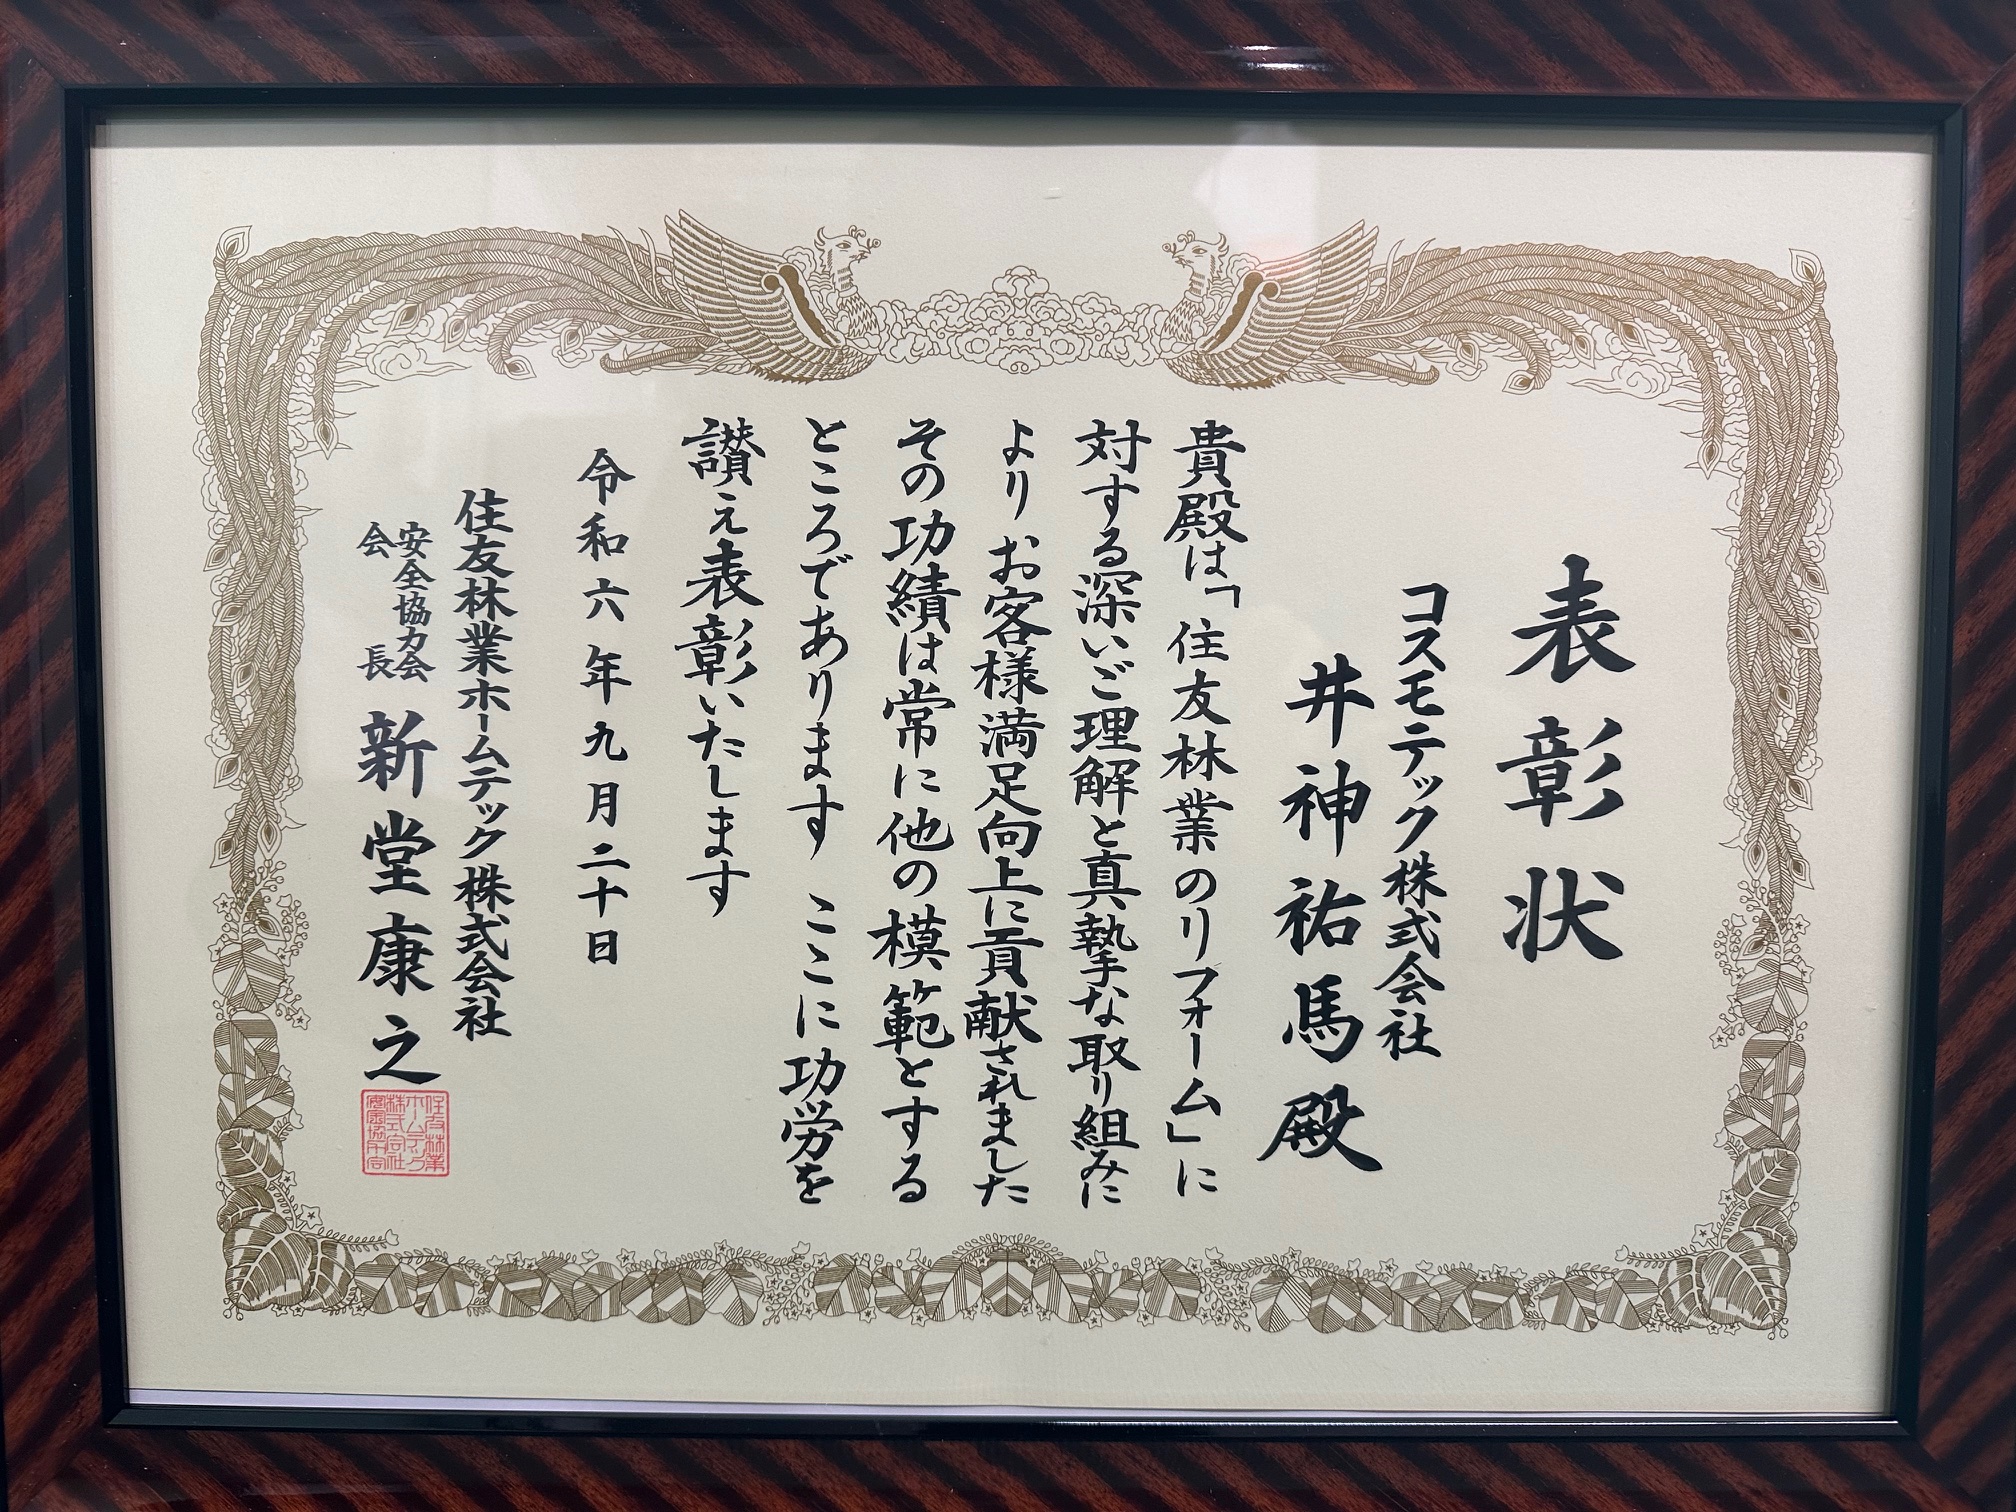 表彰状
コスモテック株式会社
井神祐馬殿
貴殿は「住友林業のリフォーム」に
対する深いご理解と真摯な取り組みに
よりお客様満足向上に貢献されました
その功績は常に他の模範とする
ところであります ここに功労を
讃え表彰いたします
令和六年九月二十日
住友林業ホームテック株式会社
安全協力会
会長 新堂康之
住友林業
ホームテック
株式会社
安全協力会